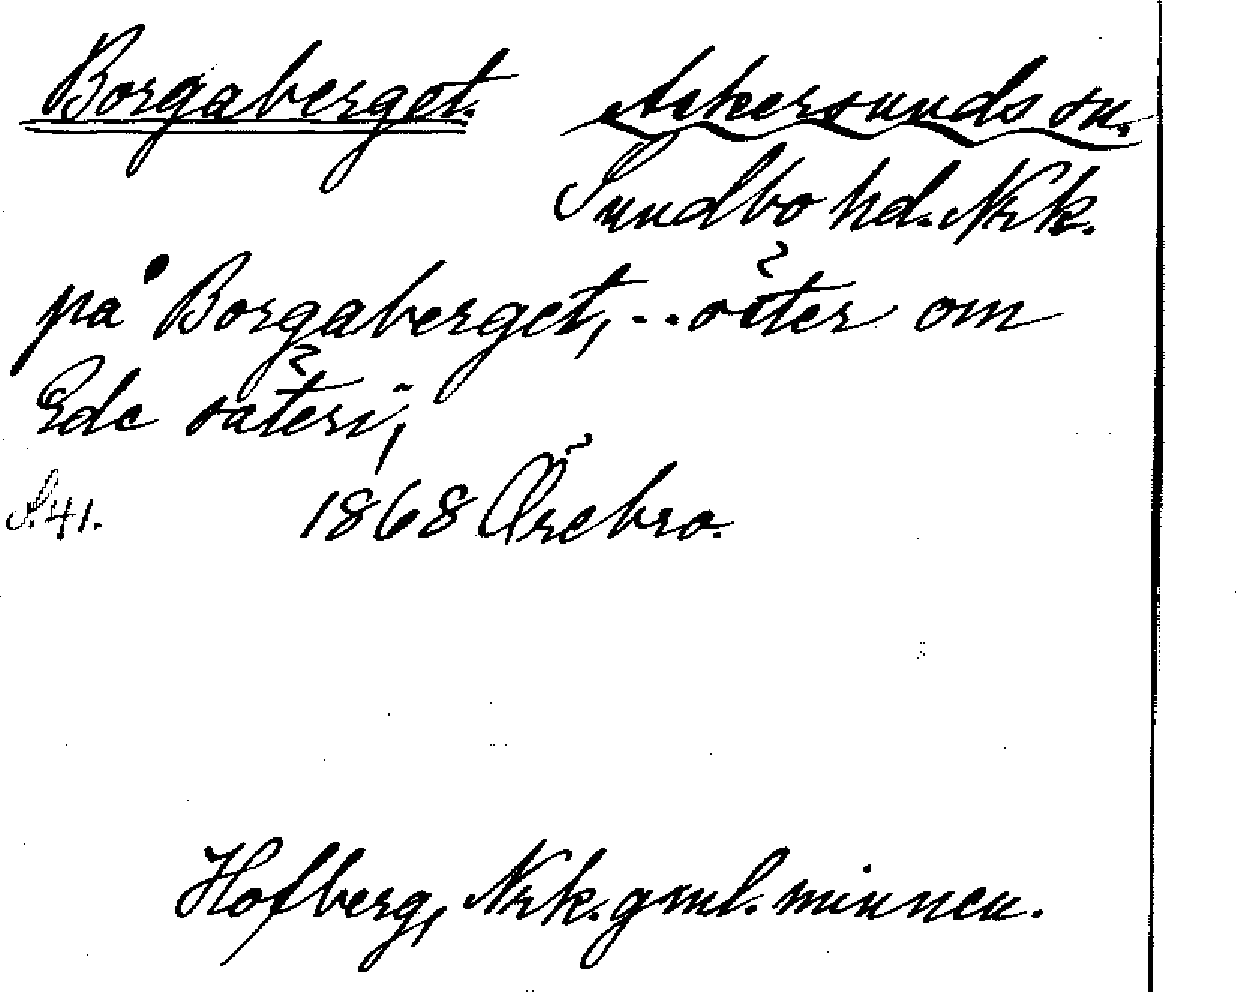 Borgaberget. Askersunds sn.
Sundbo hd. Nrk.
på Borgaberget, - .. öster om
Eds säteri,
S. 41. 1868 Örebro.
Hofberg, Nrk. gml. minnen.